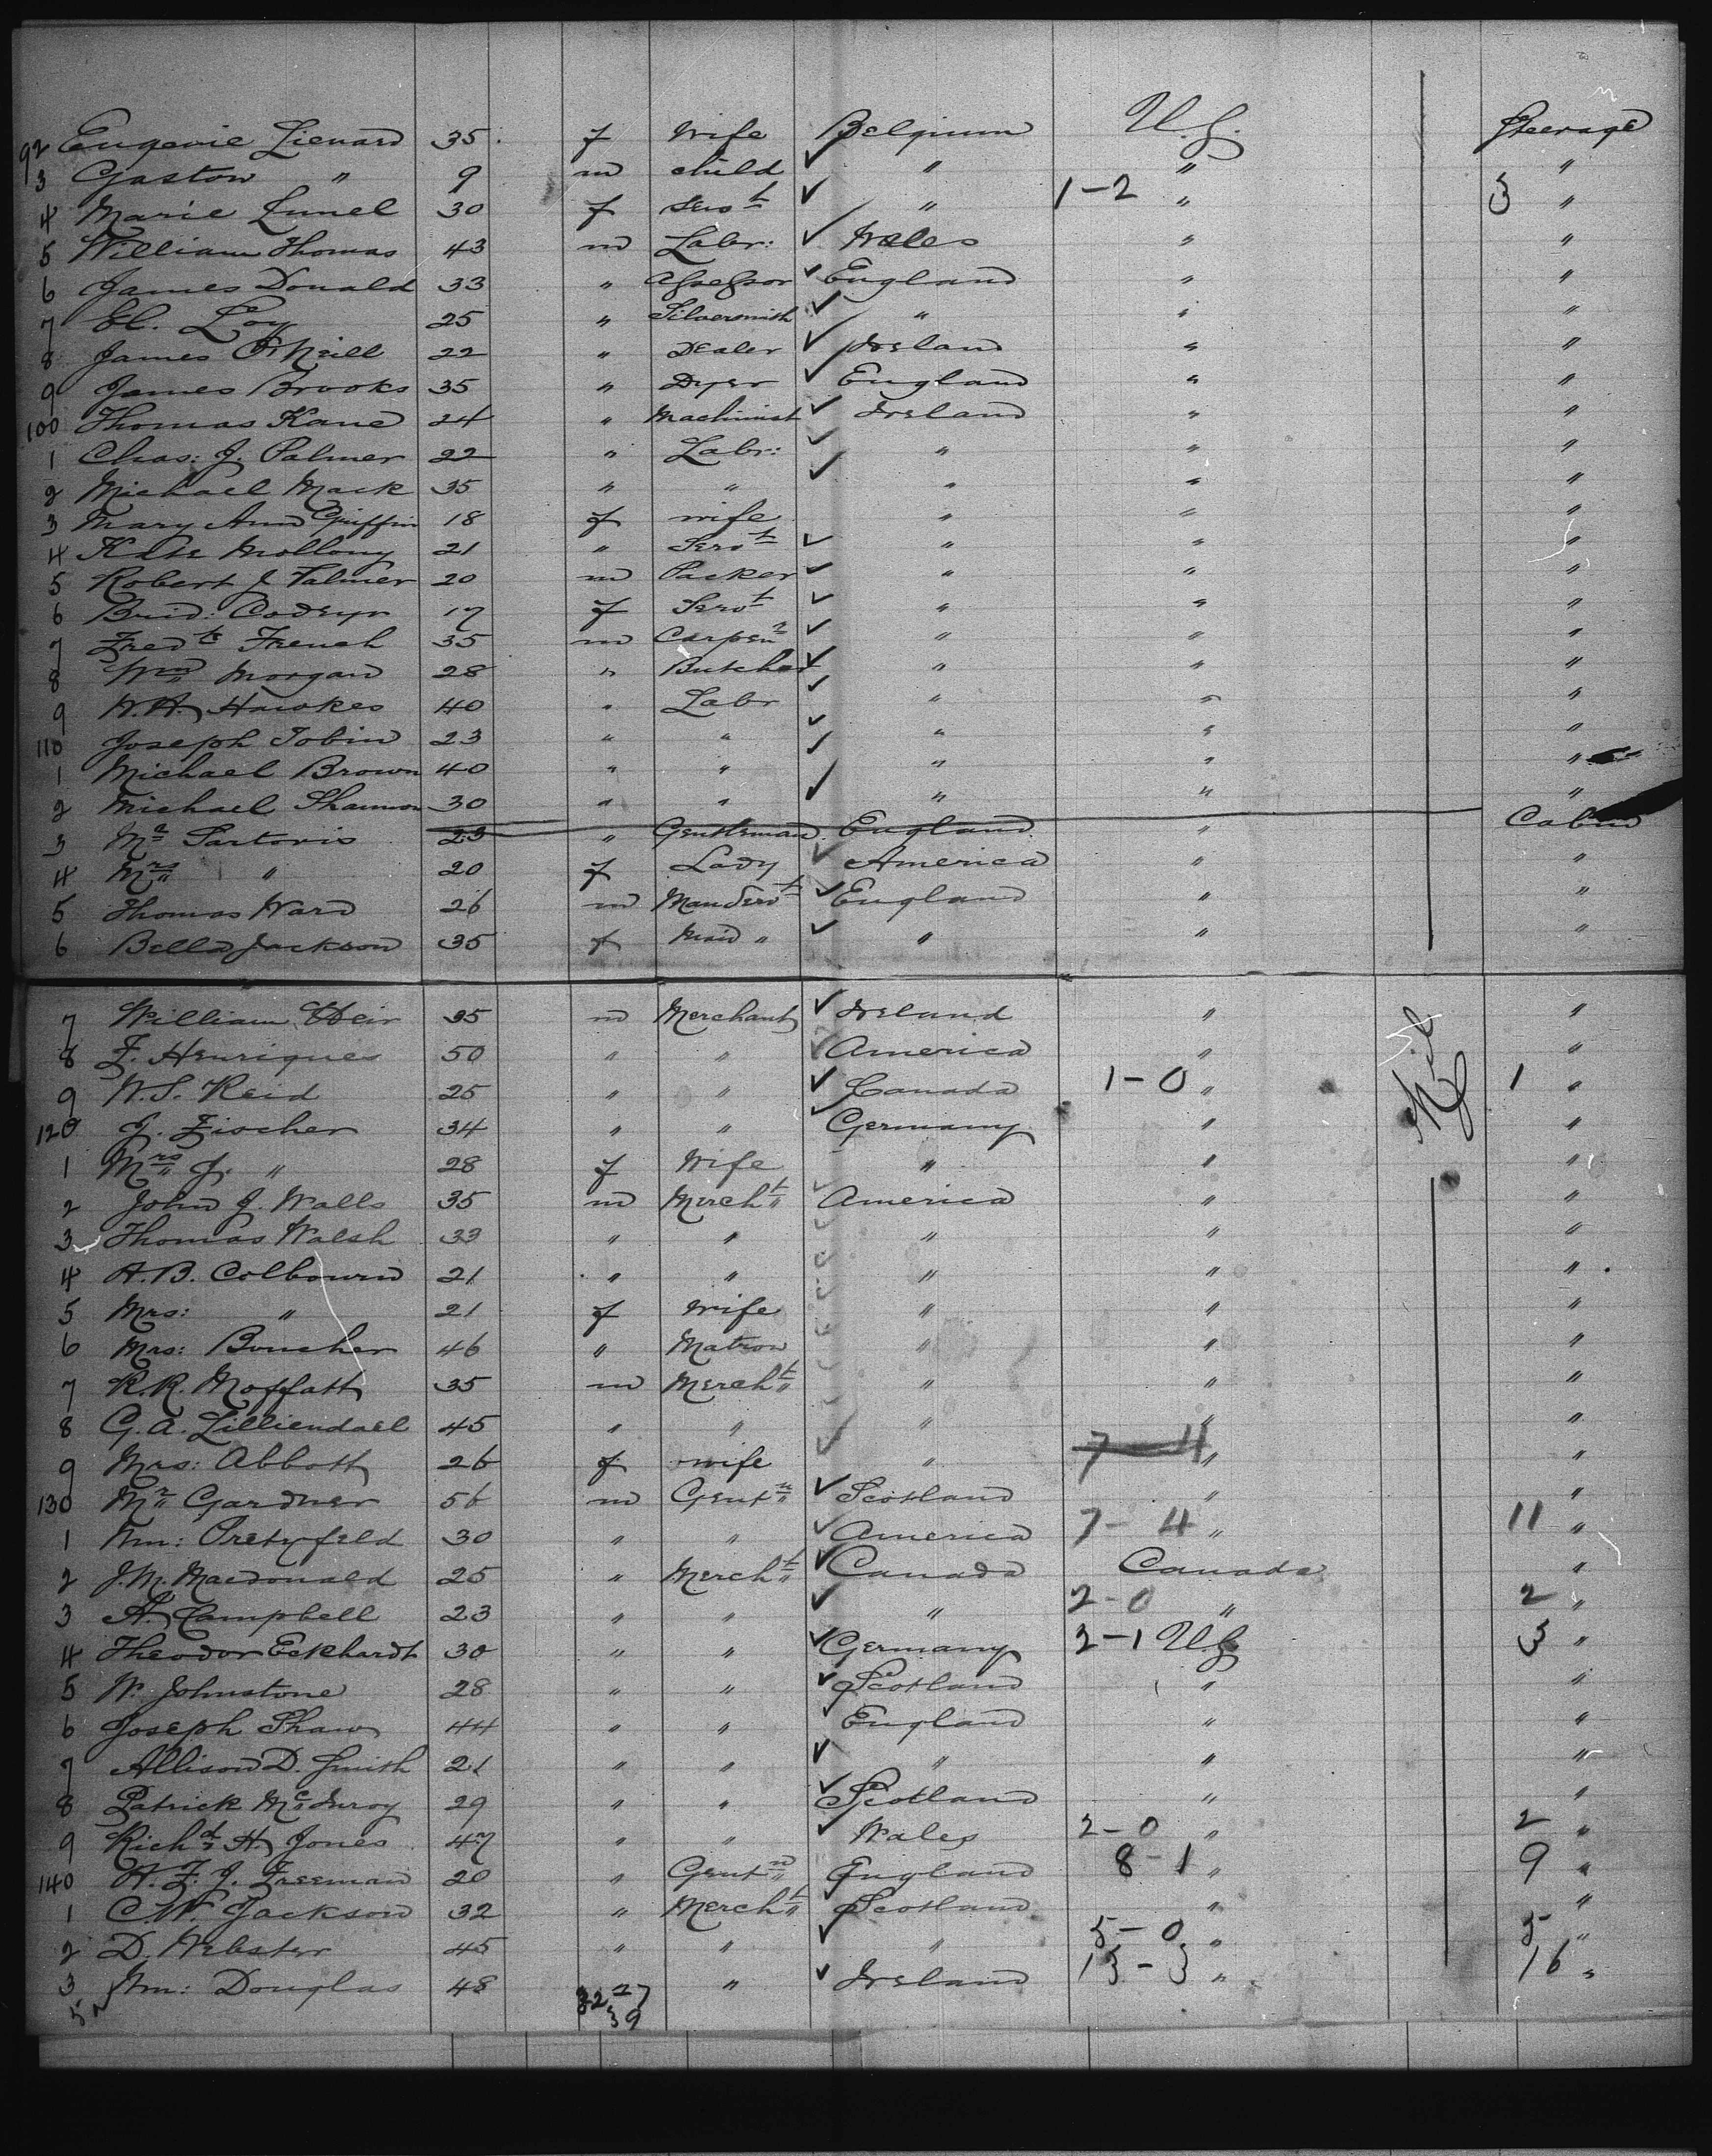 92 Eugenie Lienard 35 f Wife Belgium U.S. Steerage
3 Gaston " 9 m child " " "
4 Marie Lunel 30 f Servt " 1-2 " 3 "
5 William Thomas 43 m Labr: Wales " "
6 James Donald 33 " Assessor England " "
7 Loy 25 " Silversmith " " "
8 James O'Neill 22 " Dealer Ireland " "
9 James Brooks 35 " Dyer England " "
100 Thomas Kane 24 " Machinist Ireland " "
1 Chas: J. Palmer 22 " Labr: " " "
2 Michael Mack 35 " " " " "
3 Mary Ann Griffin 18 f wife " " "
4 Kate Mollony 21 " Servt " " "
5 Robert J Palmer 20 m Packer " " "
6 Brid: 17 f Servt " " "
7 Fredk French 35 m Carpenr " " "
8 Wm Morgan 28 " Butcher " " "
9 W.H. Hawkes 40 " Labr " " "
110 Joseph Tobin 23 " " " " "
1 Michael Brown 40 " " " " "
2 Michael Shannon 30 " " " " "
3 Mr Sartoris 23 " Gentleman England " Cabin
4 Mrs " 20 f Lady America " "
5 Thomas Ward 26 m ManServt England " "
6 Bella Jackson 35 f Maid " " " "
7 William Weir 35 m Merchant Ireland " "
8 F. Henriques 50 " " America " "
9 W.S. Reid 25 " " Canada 1-0 " Nil 1 "
120 J. Fischer 34 " " Germany " "
1 Mrs J. " 28 f Wife " " "
2 John J. Walls 35 m Mercht America " "
3 Thomas Walsh 33 " " " " "
4 A.B. Colbourn 21 " " " " "
5 Mrs: " 21 f Wife " " "
6 Mrs: Boucher 46 " Matron " " "
7 R.R. Moffatt 35 m Mercht " " "
8 G.A. Lilliendael 45 " " " " "
9 Mrs: Abbott 26 f wife " 7-4 " "
130 Mr Gardner 56 m Gentn Scotland " "
1 Wm: Pretyfeld 30 " " America 7-4 " 11 "
2 J.M. Macdonald 25 " Mercht Canada Canada "
3 A. Campbell 23 " " " 2-0 " 2 "
4 Theodor Eckhardt 30 " " Germany 2-1 U.S. 3 "
5 W. Johnstone 28 " " Scotland " "
6 Joseph Shaw 44 " " England " "
7 Allison D. Smith 21 " " " " "
8 Patrick McInroy 29 " " Scotland " "
9 Richd H. Jones 47 " " Wales 2-0 " 2 "
140 A.F.J. Freeman 20 " Gentn England 8-1 " 9 "
1 C.W. Jackson 32 " Mercht Scotland " "
2 D. Webster 45 " " " 5-0 " 5 "
3 Wm: Douglas 48 " Ireland 13-3 " 16 "